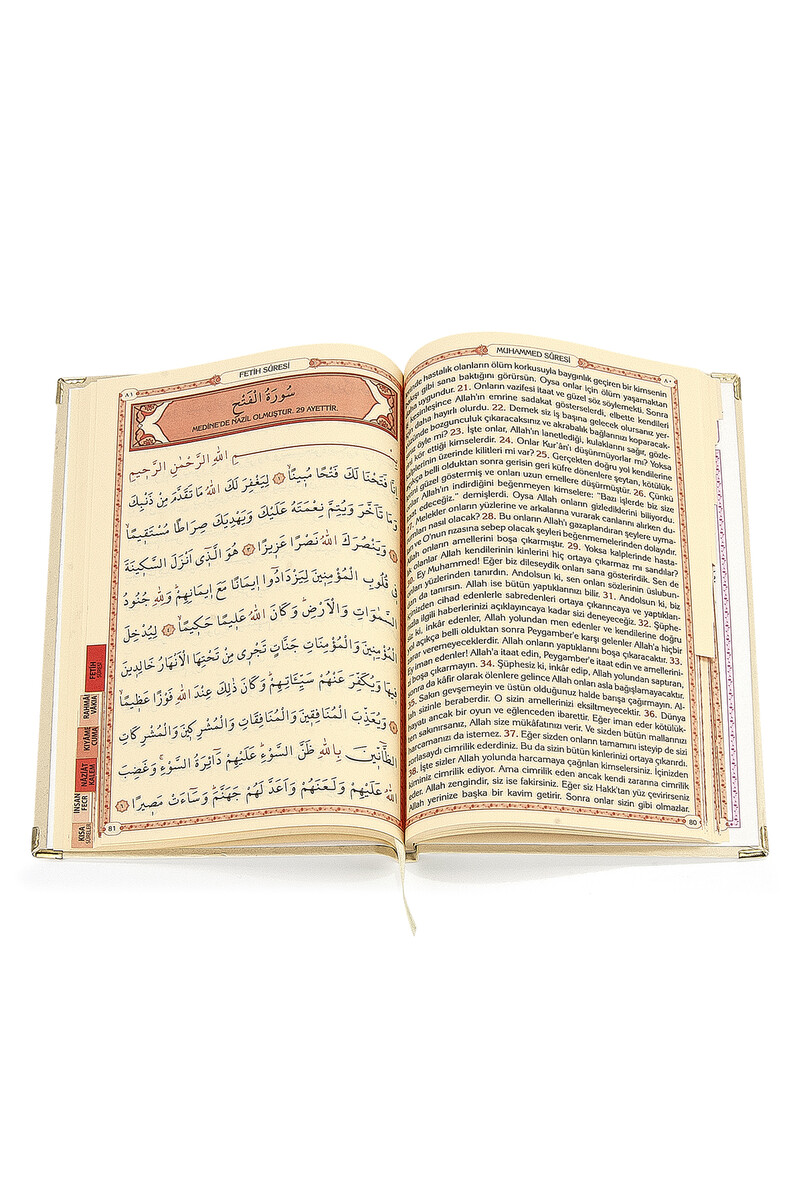 MUHAMMED SÛRESİ
٨٠
hastalık olanların ölüm korkusuyla baygınlık geçiren bir kimsenin
gibi sana baktığını görürsün. Oysa onlar için ölüm yaşamaktan
uygundur. 21. Onların vazifesi itaat ve güzel söz söylemekti. Sonra
kesinleşince Allah'ın emrine sadakat gösterselerdi, elbette kendileri
daha hayırlı olurdu. 22. Demek siz iş başına gelecek olursanız yer-
yüzünde bozgunculuk çıkaracaksınız ve akrabalık bağlarınızı koparacak-
öyle mi? 23. İşte onlar, Allah'ın lanetlediği, kulaklarını sağır, gözle-
kör ettiği kimselerdir. 24. Onlar Kur'ân'ı düşünmüyorlar mı? Yoksa
kalplerinin üzerinde kilitleri mi var? 25. Gerçekten doğru yol kendilerine
belli olduktan sonra gerisin geri küfre dönenlere şeytan, kötülük-
güzel göstermiş ve onları uzun emellere düşürmüştür. 26. Çünkü
Allah'ın indirdiğini beğenmeyen kimselere: "Bazı işlerde biz size
edeceğiz." demişlerdi. Oysa Allah onların gizlediklerini biliyordu.
27. Melekler onların yüzlerine ve arkalarına vurarak canlarını alırken du-
nasıl olacak? 28. Bu onların Allah'ı gazaplandıran şeylere uyma-
ve O'nun rızasına sebep olacak şeyleri beğenmemelerinden dolayıdır.
onların amellerini boşa çıkarmıştır. 29. Yoksa kalplerinde hasta-
olanlar Allah kendilerinin kinlerini hiç ortaya çıkarmaz mı sandılar?
30. Ey Muhammed! Eğer biz dileseydik onları sana gösterirdik. Sen de
yüzlerinden tanırdın. Andolsun ki, sen onları sözlerinin üslubun-
dan da tanırsın. Allah ise bütün yaptıklarınızı bilir. 31. Andolsun ki, biz
içinizden cihad edenlerle sabredenleri ortaya çıkarıncaya ve yaptıkları-
ilgili haberlerinizi açıklayıncaya kadar sizi deneyeceğiz. 32. Şüphe-
ki, inkâr edenler, Allah yolundan men edenler ve kendilerine doğru
açıkça belli olduktan sonra Peygamber'e karşı gelenler Allah'a hiçbir
veremeyeceklerdir. Allah onların yaptıklarını boşa çıkaracaktır. 33.
Ey iman edenler! Allah'a itaat edin, Peygamber'e itaat edin ve amellerini-
boşa çıkarmayın. 34. Şüphesiz ki, inkâr edip, Allah yolundan saptıran,
sonra da kâfir olarak ölenlere gelince Allah onları asla bağışlamayacaktır.
35. Sakın gevşemeyin ve üstün olduğunuz halde barışa çağırmayın. Al-
sizinle beraberdir. O sizin amellerinizi eksiltmeyecektir. 36. Dünya
hayatı ancak bir oyun ve eğlenceden ibarettir. Eğer iman eder kötülük-
sakınırsanız, Allah size mükâfatınızı verir. Ve sizden bütün mallarınızı
harcamanızı da istemez. 37. Eğer sizden onların tamamını isteyip de sizi
zorlasaydı cimrilik ederdiniz. Bu da sizin bütün kinlerinizi ortaya çıkarırdı.
38. İşte sizler Allah yolunda harcamaya çağrılan kimselersiniz. İçinizden
kiminiz cimrilik ediyor. Ama cimrilik eden ancak kendi zararına cimrilik
eder. Allah zengindir, siz ise fakirsiniz. Eğer siz Hakk'tan yüz çevirirseniz
Allah yerinize başka bir kavim getirir. Sonra onlar sizin gibi olmazlar.
80
FETİH SÛRESİ
٨١
سُورَةُ الْفَتْحِ
MEDİNE'DE NAZİL OLMUŞTUR. 29 AYETTİR.
بِسْمِ اللّٰهِ الرَّحْمٰنِ الرَّح۪يمِ
اِنَّا فَتَحْنَا لَكَ فَتْحًا مُب۪ينًاۙ ﴿١﴾ لِيَغْفِرَ لَكَ اللّٰهُ مَا تَقَدَّمَ مِنْ ذَنْبِكَ
وَمَا تَاَخَّرَ وَيُتِمَّ نِعْمَتَهُ عَلَيْكَ وَيَهْدِيَكَ صِرَاطًا مُسْتَق۪يمًاۙ
﴿٢﴾ وَيَنْصُرَكَ اللّٰهُ نَصْرًا عَز۪يزًا ﴿٣﴾ هُوَ الَّذ۪ٓي اَنْزَلَ السَّك۪ينَةَ
ف۪ي قُلُوبِ الْمُؤْمِن۪ينَ لِيَزْدَادُٓوا ا۪يمَانًا مَعَ ا۪يمَانِهِمْۜ وَلِلّٰهِ جُنُودُ
السَّمٰوَاتِ وَالْاَرْضِۜ وَكَانَ اللّٰهُ عَل۪يمًا حَك۪يمًاۙ ﴿٤﴾ لِيُدْخِلَ
الْمُؤْمِن۪ينَ وَالْمُؤْمِنَاتِ جَنَّاتٍ تَجْر۪ي مِنْ تَحْتِهَا الْاَنْهَارُ خَالِد۪ينَ
ف۪يهَا وَيُكَفِّرَ عَنْهُمْ سَيِّـَٔاتِهِمْۜ وَكَانَ ذٰلِكَ عِنْدَ اللّٰهِ فَوْزًا عَظ۪يمًاۙ
﴿٥﴾ وَيُعَذِّبَ الْمُنَافِق۪ينَ وَالْمُنَافِقَاتِ وَالْمُشْرِك۪ينَ وَالْمُشْرِكَاتِ
الظَّٓانّ۪ينَ بِاللّٰهِ ظَنَّ السَّوْءِۜ عَلَيْهِمْ دَٓائِرَةُ السَّوْءِۚ وَغَضِبَ
اللّٰهُ عَلَيْهِمْ وَلَعَنَهُمْ وَاَعَدَّ لَهُمْ جَهَنَّمَۜ وَسَٓاءَتْ مَص۪يرًا ﴿٦﴾
81
FETİH
SÛRESİ
RAHMÂN
VÂKIA
KIYÂME
CUMA
NÂZİÂT
KALEM
İNSAN
FECR
KISA
SÛRELER